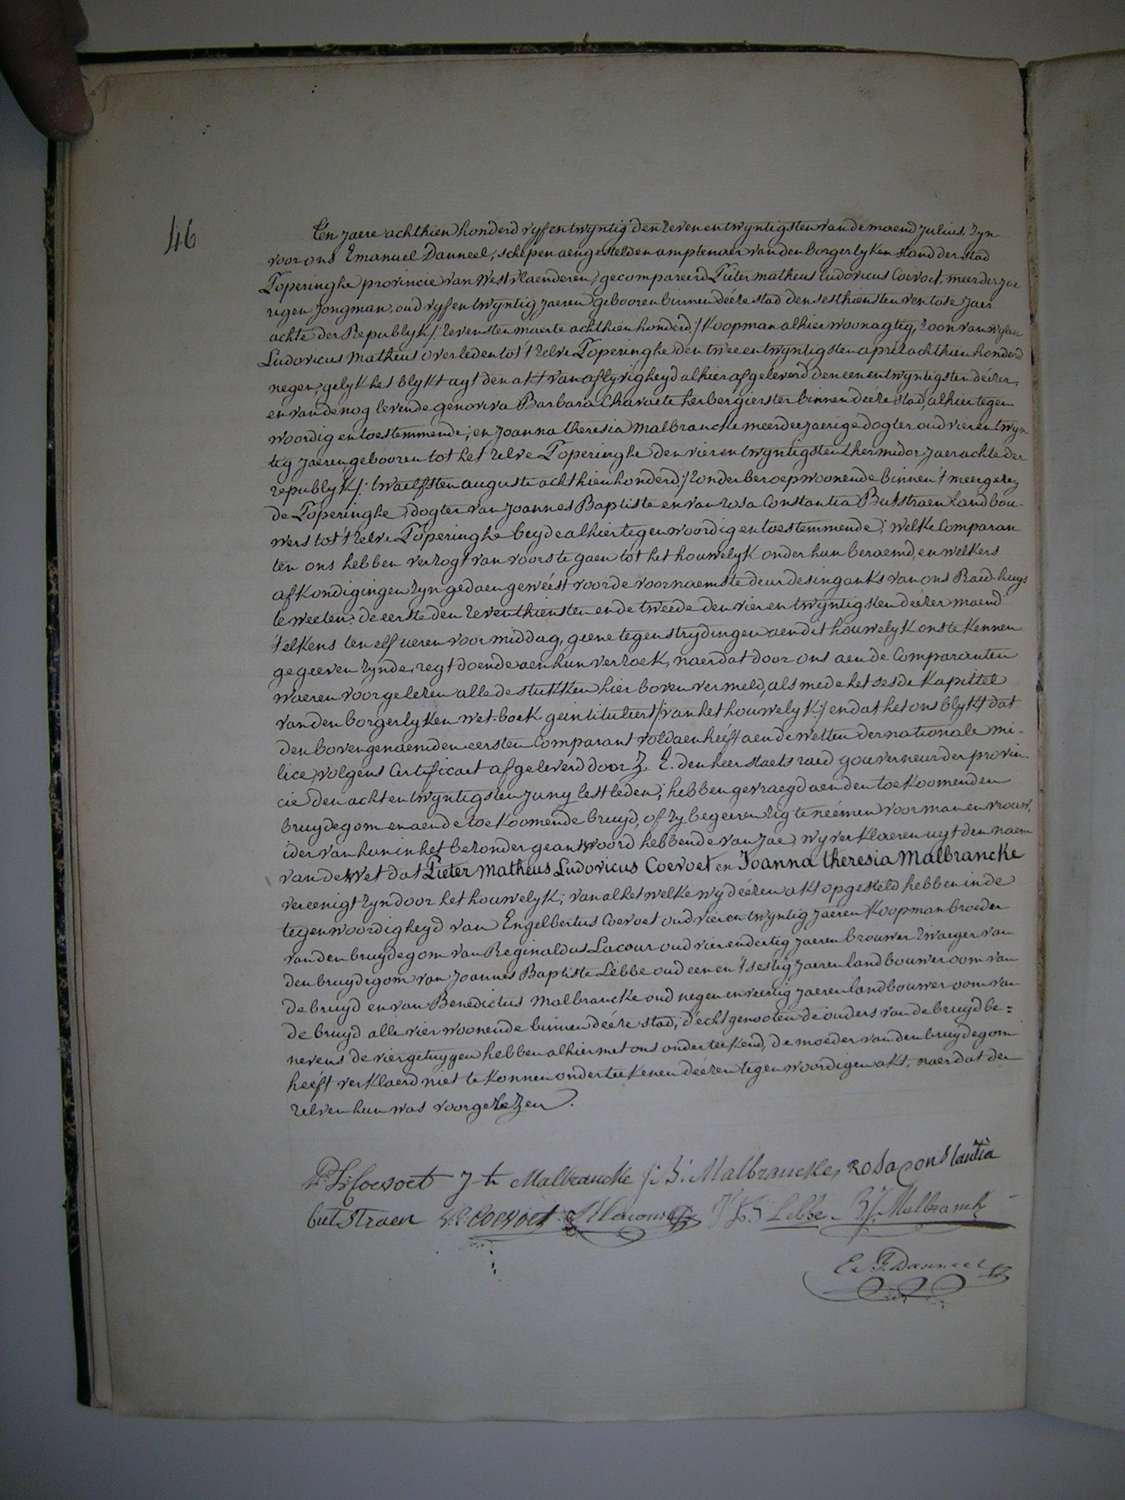 46
Ten jaere achthien honderd vyf en twyntig den zeven en twyntigsten van de maend julius, zyn
voor ons Emanuel Danneel, schepen aengestelden amptenaer van den borgerlyken stand der stad
Poperinghe provincie van West vlaenderen, gecompareerd Pieter matheus Ludovicus Coevoet, meerderjae
rigen Jongman, oud vyf en twyntig jaeren gebooren binnen déeze stad den sesthiensten ventose jaer
achte der Republyk /: zevensten maerte achthien honderd :/ Koopman alhier woonagtig, zoon van wylen
Ludovicus Matheus overleden tot 't zelve Poperinghe den twee en twyntigsten april achthien honderd
negen, gelyk het blykt uyt den akt van aflyvigheyd alhier afgeleverd den een en twyntigsten déezer,
en van de nog levende genoviva Barbara Charaete herbergierster binnen déeze stad, alhier tegen
woordig en toestemmende; en Joanna theresia Malbrancke meerderjaerige dogter oud vier en twyn
tig jaeren gebooren tot het zelve Poperinghe den vier en twyntigsten thermidor jaer achte der
republyk /: twaelfsten auguste achthien honderd :/ zonder beroep woonende binnen 't meergezey
de Poperinghe, dogter van Joannes Baptiste en van rosa Constantia Butstraen Landbou-
wers tot 't zelve Poperinghe beyde alhier tegenwoordig en toestemmende; welke Comparan
ten ons hebben verzogt van voorts te gaen tot het houwelyk onder hun beraemd, en welkers
afkondigingen zyn gedaen gewéest voor de voornaemste deur des ingangs van ons Raed-huys
te weeten: de eerste den zeventhiensten en de tweede den vier en twyntigsten déezer maend
telkens ten elf ueren voormiddag, geene tegenstrydingen aen dit houwelyk ons te kennen
gegeeven zynde, regt doende aen hun verzoek, naer dat door ons aen de Comparanten
waeren voorgelezen alle de stukken hier boven vermeld, als mede het sesde Kapittel
van den borgerlyken wet-boek geintituleert /: van het houwelyk :/ en dat het ons blykt dat
den bovengenaemden eersten Comparant voldaen heeft aen de wetten der nationale mi-
lice, volgens Certificaet afgeleverd door Z. E. den heer staets raed gouverneur der provin-
cie den acht en twyntigsten Juny lestleden; hebben gevraegd aen den toekoomenden
bruydegom en aen de toekoomende bruyd, of zy begeeren zig te néemen voor man en vrouw,
ider van hun in het bezonder geantwoord hebbende van Jae, wy verklaeren uyt den naem
van de Wet dat Pieter Matheus Ludovicus Coevoet en Joanna theresia Malbrancke
vereenigt zyn door het houwelyk; van al het welke wy déezen akt opgesteld hebben in de
tegenwoordigheyd van Engelbertus Coevoet oud vier en twyntig jaeren Koopman broeder
van den bruydegom van Reginaldus Lacour oud vier en dertig jaeren brouwer Zwaeger van
den bruydegom van Joannes Baptiste Lebbe oud een en 't sestig jaeren landbouwer oom van
de bruyd en van Benedictus Malbrancke oud negen en veertig jaeren landbouwer oom van
de bruyd alle vier woonende binnen déeze stad, d'echtgenooten de ouders van de bruyd be=
nevens de vier getuygen hebben alhier met ons onderteekend, de moeder van den bruydegom
heeft verklaerd niet te konnen onderteekenen déezen tegenwoordigen akt, naer dat den
zelven hun was voorgelezen.
P. L. Coevoet J. th Malbrancke J. B. Malbrancke, Rosa Constantia
butstraen Coevoet RLacour J. B. Lebbe B. J. Malbrancke
E. F. Danneel